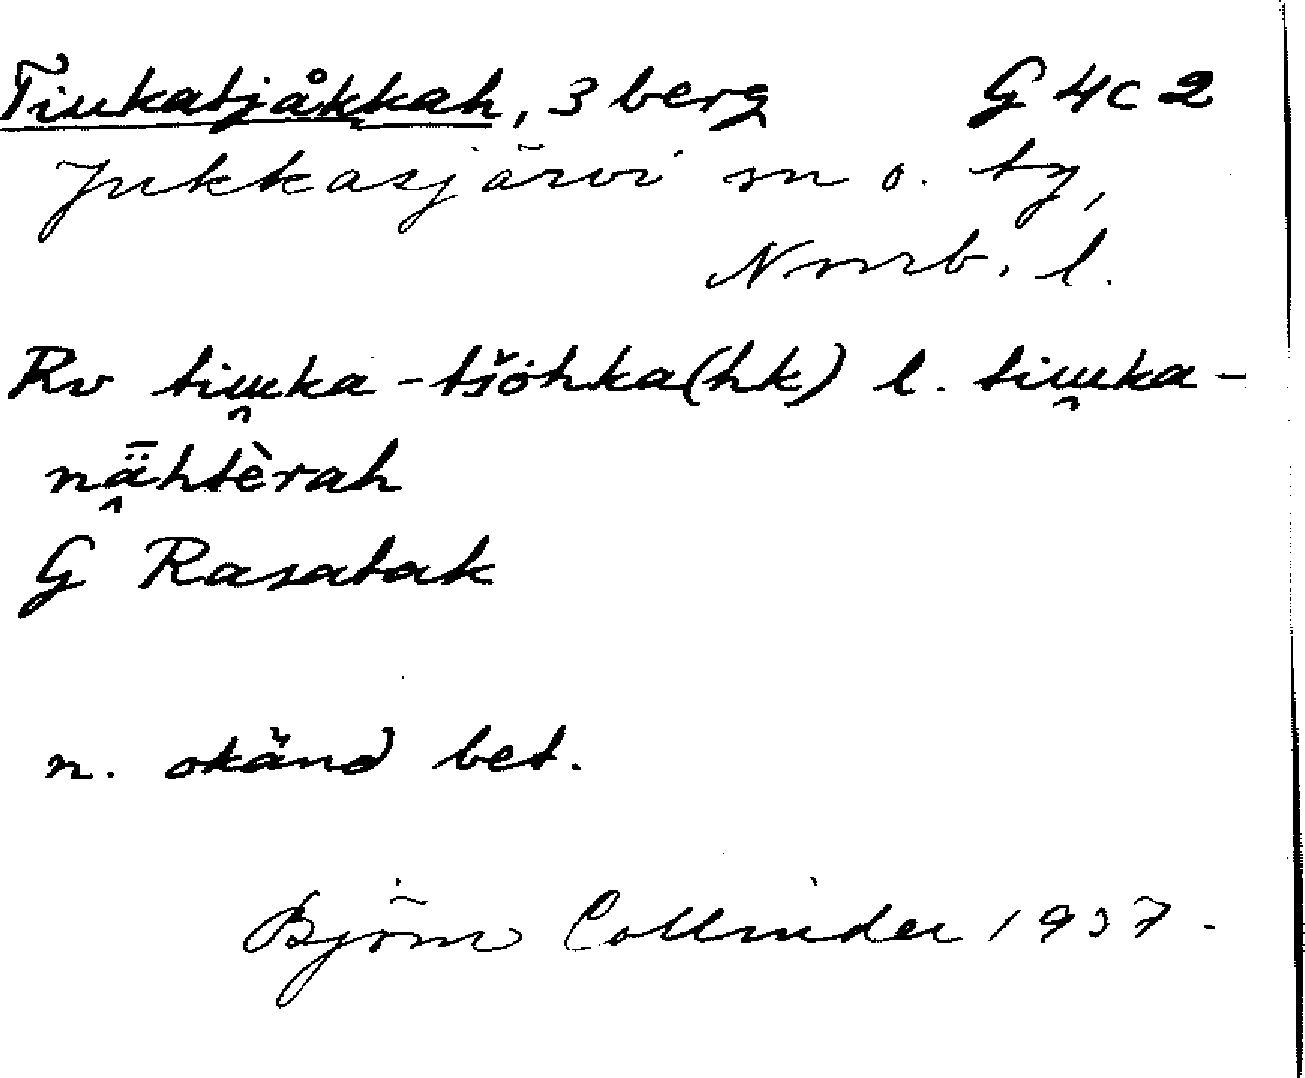 Tiukatjåkkah, 3 berg G 4c 2
Jukkasjärvi sn o. tg,
Norrb. l.
Rv tiu̯ka-tšȯhka(hk) l. tiu̯ka-
nǟ̭htèrah
G Rasatak
n. okänd bet.
Björn Collinder 1937.